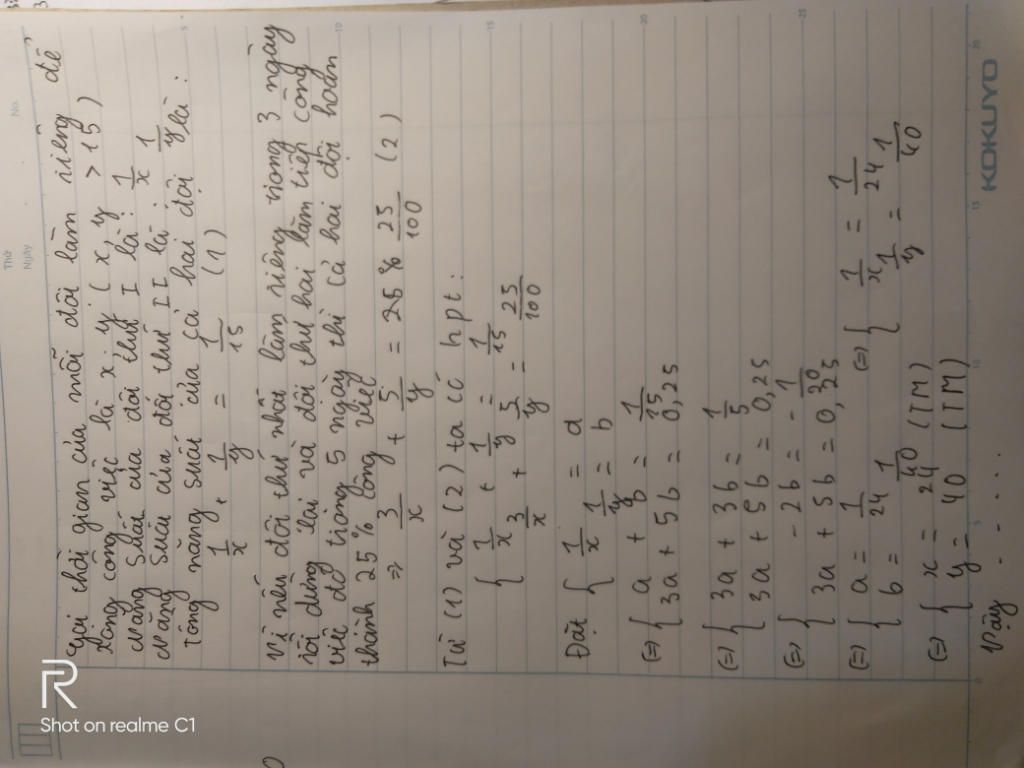 Thứ
Ngày
No.
Gọi thời gian của mỗi đội làm riêng để
xong công việc là x, y (x, y > 15)
Năng suất của đội thứ I là: 1/x
Năng suất của đội thứ II là: 1/y
Tổng năng suất của cả hai đội là:
1/x + 1/y = 1/15 (1)
Vì nếu đội thứ nhất làm riêng trong 3 ngày
rồi dừng lại và đội thứ hai làm tiếp công
việc đó trong 5 ngày thì cả hai đội hoàn
thành 25% công việc
=> 3/x + 5/y = 25% 25/100 (2)
Từ (1) và (2) ta có hpt:
{ 1/x + 1/y = 1/15
3/x + 5/y = 25/100
Đặt { 1/x = a
1/y = b
(=) { a + b = 1/15
3a + 5b = 0,25
(=) { 3a + 3b = 1/5
3a + 5b = 0,25
(=) { -2b = -1/20
3a + 5b = 0,25
(=) { a = 1/24
b = 1/40
(=) { 1/x = 1/24
1/y = 1/40
(=) { x = 24 (TM)
y = 40 (TM)
Vậy . . . . . .
KOKUYO
R
Shot on realme C1